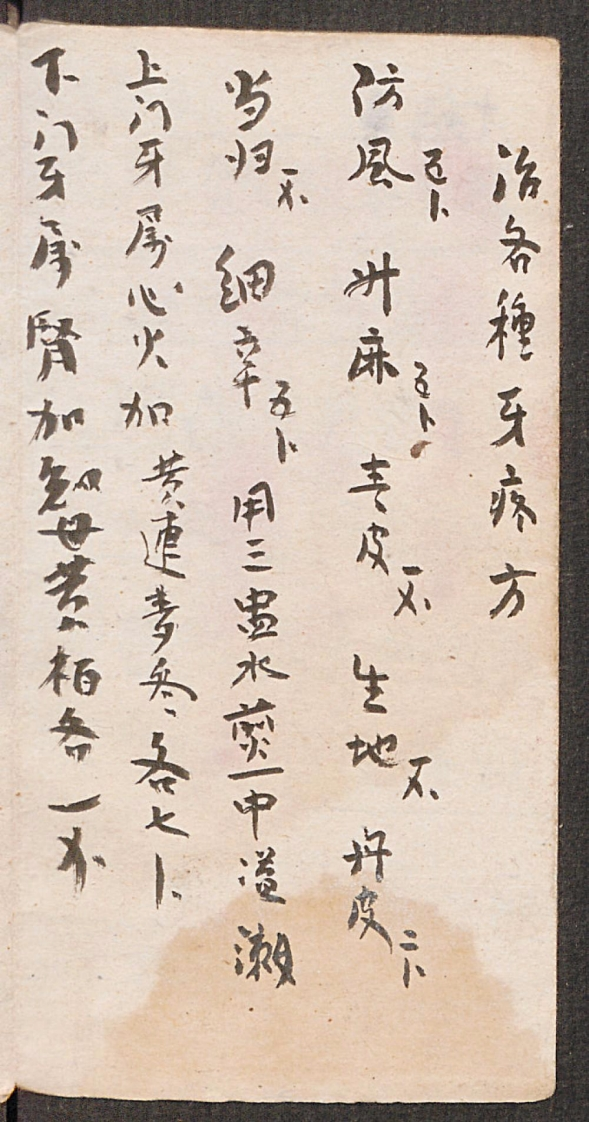 治各種牙疼方
防風五卜 升麻五卜 青皮 生地 丹皮二卜
当归 細辛五卜 用三盅水煎一中溫漱
上门牙属心火加黄連麦冬各七卜
下门牙属腎加知母黄柏各一